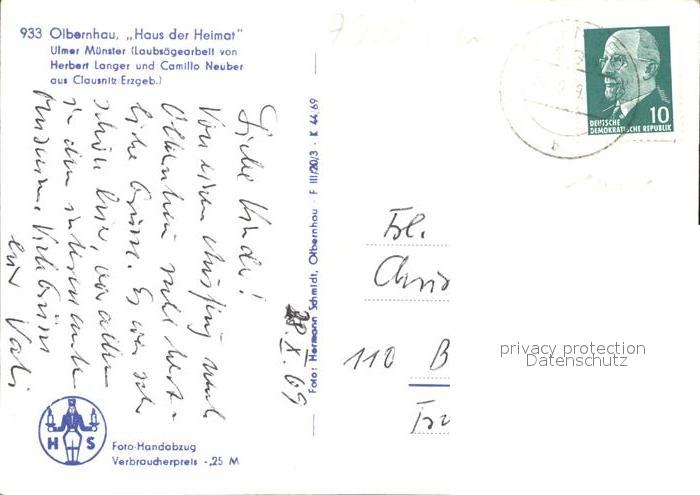 933 Olbernhau, „Haus der Heimat"
Ulmer Münster (Laubsägearbeit von
Herbert Langer und Camillo Neuber
aus Clausnitz Erzgeb.)
Liebe Kinder!
Von einem Ausflug nach
Olbernhau recht herz-
liche Grüsse. Es war sehr
schön hier, vor allem
in dem interessanten
Museum. Viele Grüsse
euer Vati
28.X.69
Foto: Hermann Schmidt, Olbernhau · F III/20/3 · K 44 69
H S
Foto-Handabzug
Verbraucherpreis -,25 M
10
DEUTSCHE
DEMOKRATISCHE REPUBLIK
Frl.
Chris
110 B
privacy protection
Datenschutz